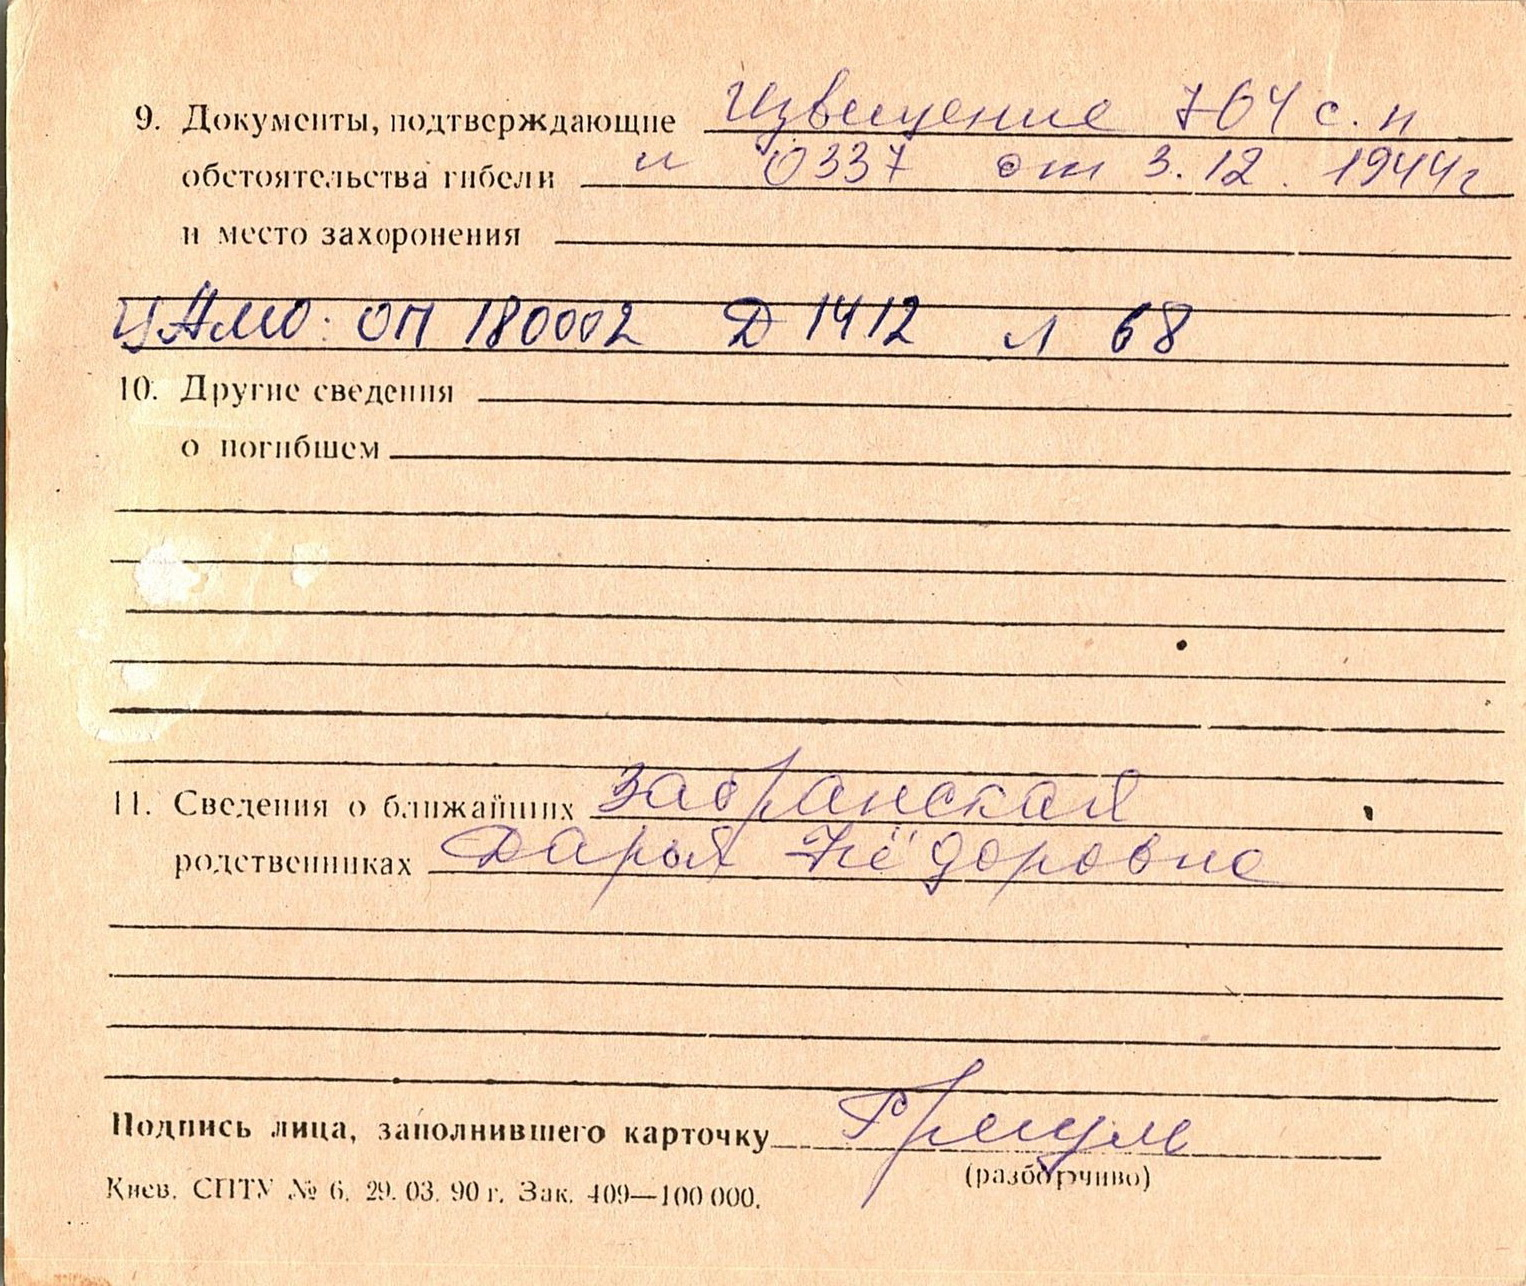 9. Документы, подтверждающие Извещение 764 с. п
обстоятельства гибели и 0337 от 3.12. 1944г
и место захоронения
ЦАМО: ОП 180002 Д 1412 л 68
10. Другие сведения
о погибшем
11. Сведения о ближайших Забранская
родственниках Дарья Фёдоровна
Подпись лица, заполнившего карточку
(разборчиво)
Киев. СПТУ № 6. 29. 03. 90 г. Зак. 409—100 000.